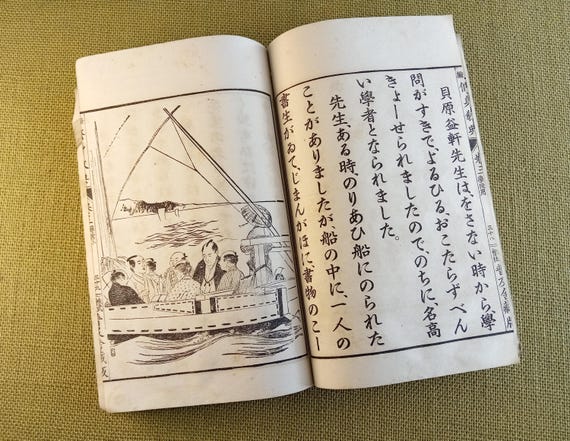 貝原益軒先生は、をさない時から學
問がすきで、よるひる、おこたらず、べん
きょーせられましたので、のちに、名高
い學者となられました。
先生ある時、のりあひ船にのられた
ことがありましたが、船の中に、一人の
書生がゐて、じまんがほに、書物のこー